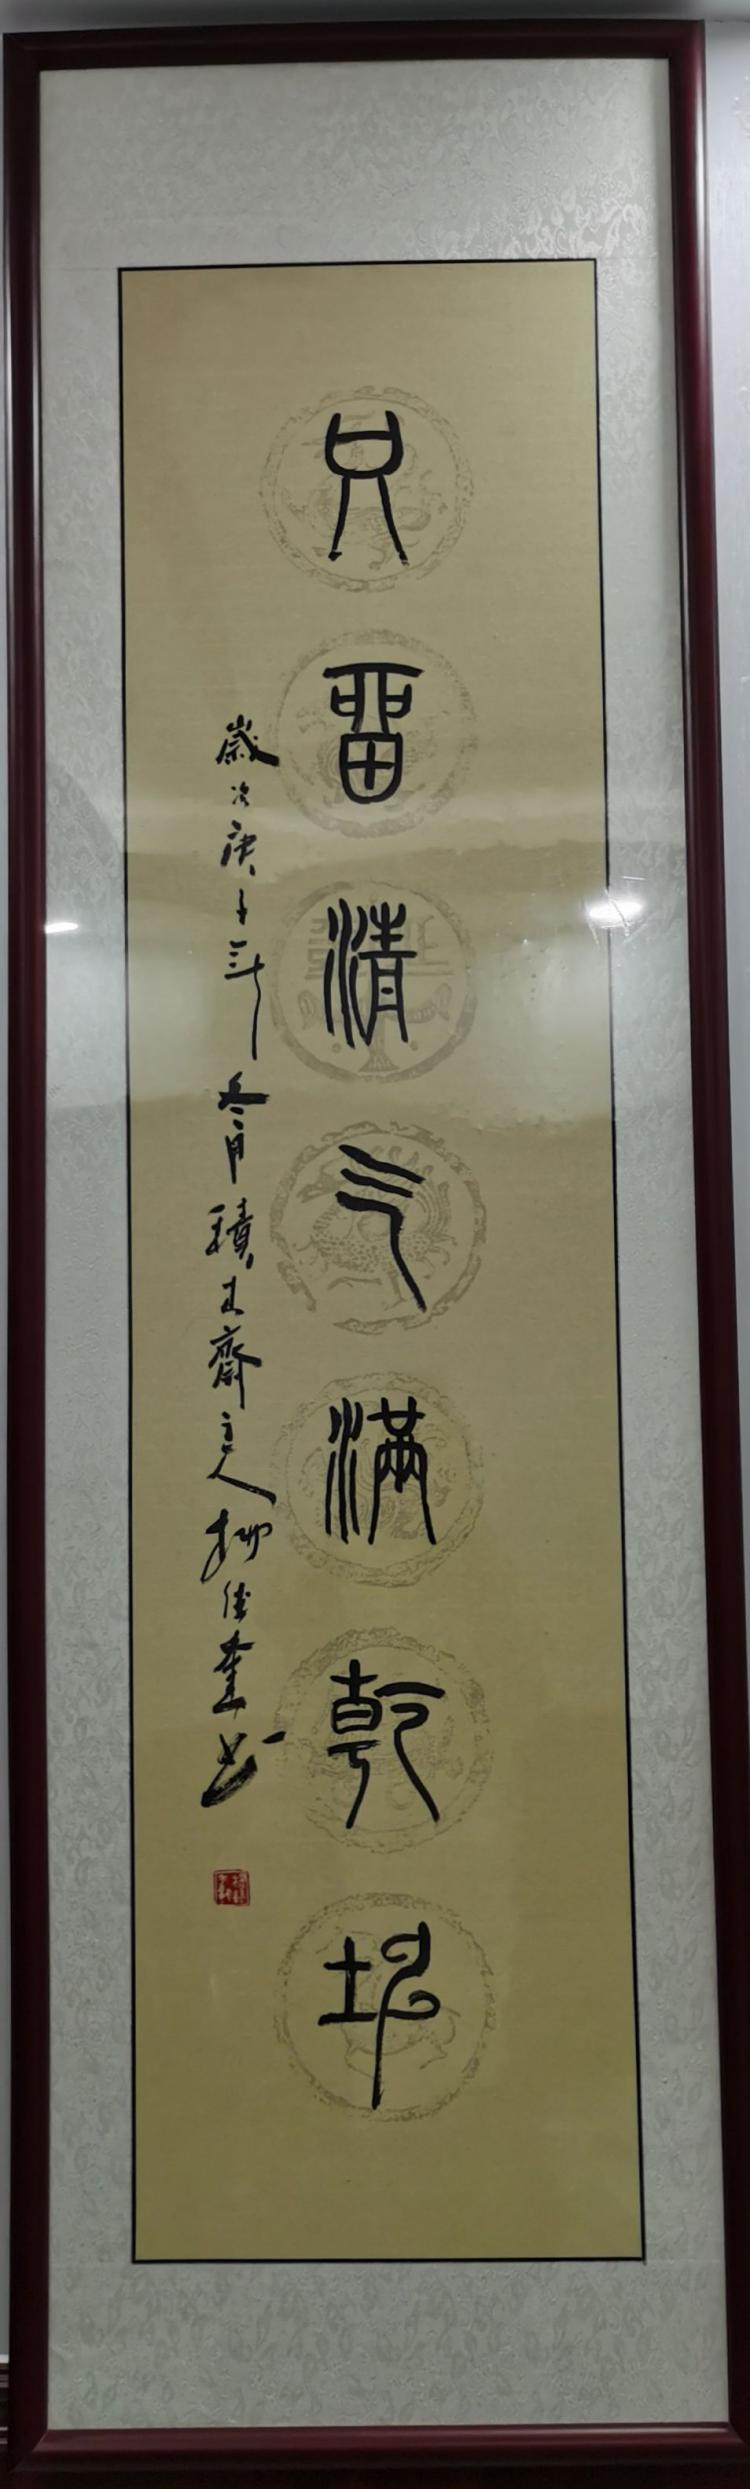 只留清气满乾坤
歲次庚子年冬月積玉齋主人柳佳奎书